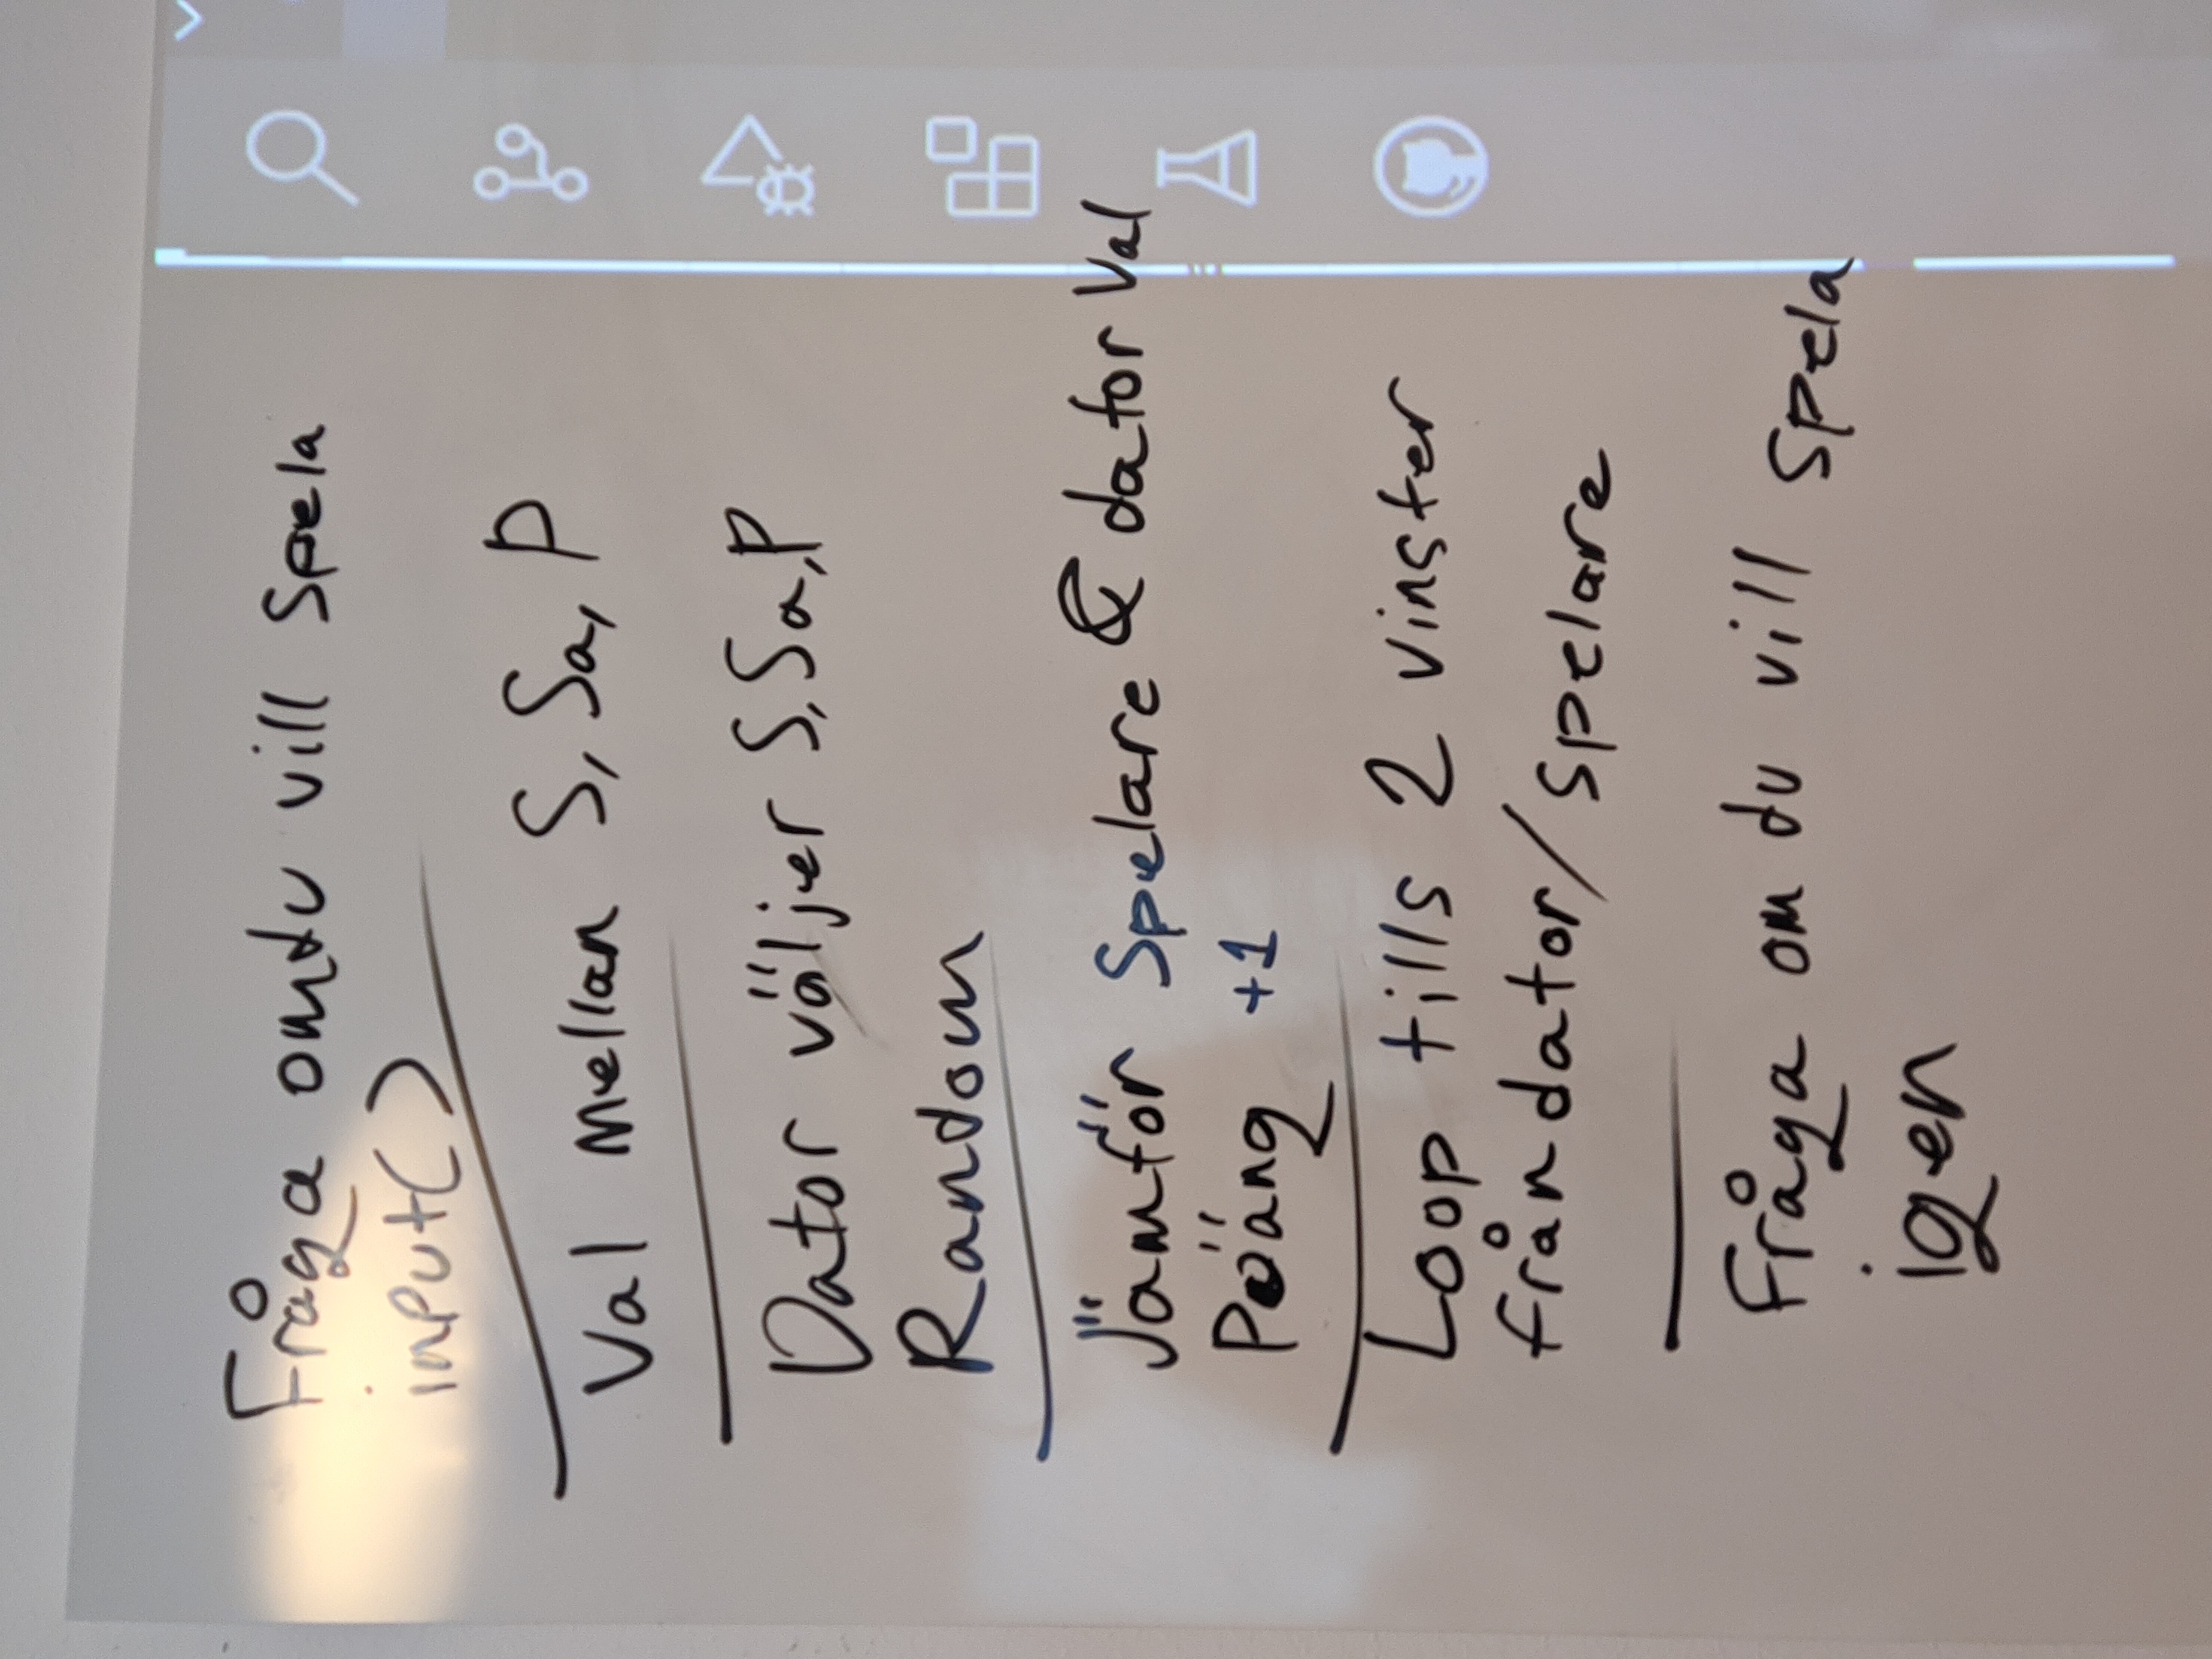 Fråga om du vill spela
input()
Val mellan S, Sa, P
Dator väljer S, Sa, P
Random
Jämför Spelare & dator val
Poäng +1
Loop tills 2 vinster
från dator/spelare
Fråga om du vill spela
igen